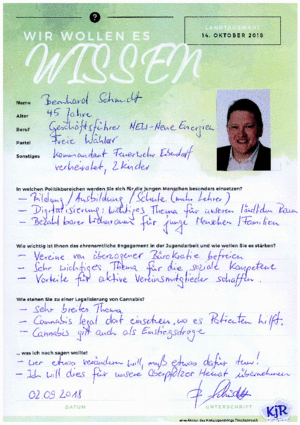 LANDTAGSWAHL
14. OKTOBER 2018
WIR WOLLEN ES
WISSEN
Name Bernhard Schmidt
Alter 45 Jahre
Beruf Geschäftsführer NEW-Neue Energien
Partei Freie Wähler
Sonstiges Kommandant Feuerwehr
verheiratet, 2 Kinder
In welchen Politikbereichen werden Sie sich für die jungen Menschen besonders einsetzen?
- Bildung / Ausbildung / Schule (mehr Lehrer)
- Digitalisierung: wichtiges Thema für unseren ländlichen Raum
- Bezahlbarer Wohnraum für junge Menschen / Familien
Wie wichtig ist Ihnen das ehrenamtliche Engagement in der Jugendarbeit und wie wollen Sie es stärken?
- Vereine von überzogener Bürokratie befreien
- Sehr wichtiges Thema für die soziale Kompetenz
- Vorteile für aktive Vereinsmitglieder schaffen
Wie stehen Sie zu einer Legalisierung von Cannabis?
- Sehr breites Thema
- Cannabis legal dort einsetzen, wo es Patienten hilft.
- Cannabis gilt auch als Einstiegsdroge
... was ich noch sagen wollte!
- Wer etwas verändern will, muß etwas dafür tun!
- Ich will dies für unsere Oberpfälzer Heimat übernehmen
02.09.2018
DATUM
UNTERSCHRIFT
KJR